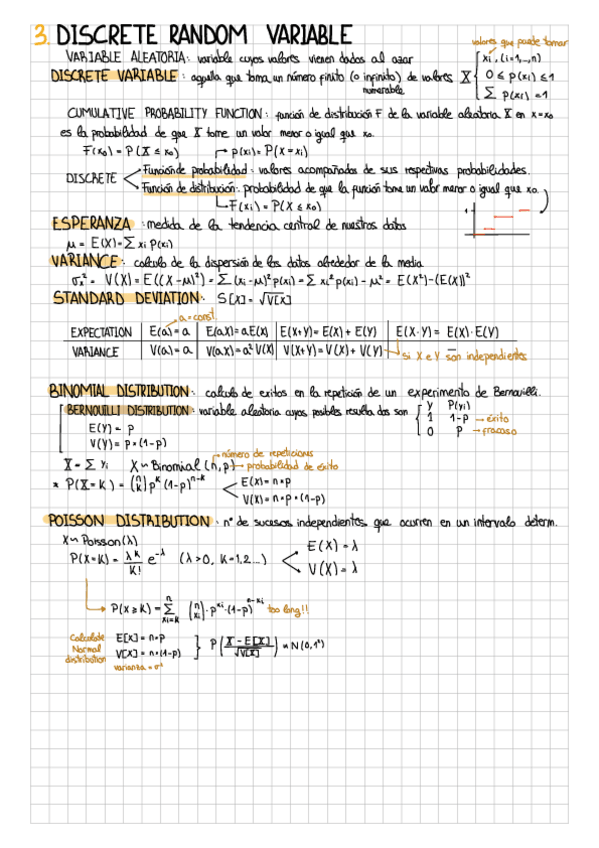 3. DISCRETE RANDOM VARIABLE
valores que puede tomar
VARIABLE ALEATORIA: variable cuyos valores vienen dados al azar
DISCRETE VARIABLE: aquella que toma un número finito (o infinito) de valores X { xi, (i=1,...,n)
numerable
0 ≤ p(xi) ≤ 1
Σ p(xi) = 1
CUMULATIVE PROBABILITY FUNCTION: función de distribución F de la variable aleatoria X en x=x0
es la probabilidad de que X tome un valor menor o igual que x0.
F(x0) = P(X ≤ x0) → p(xi) = P(X = xi)
DISCRETE
Función de probabilidad: valores acompañados de sus respectivas probabilidades.
Función de distribución: probabilidad de que la función tome un valor menor o igual que x0.
F(xi) = P(X ≤ x0)
1
ESPERANZA: medida de la tendencia central de nuestros datos
μ = E(X) = Σ xi p(xi)
VARIANCE: calculo de la dispersión de los datos alrededor de la media
σx² = V(X) = E((X-μ)²) = Σ (xi-μ)² p(xi) = Σ xi² p(xi) - μ² = E(X²)-(E(X))²
STANDARD DEVIATION: S[X] = √V[X]
a = const.
EXPECTATION | E(a) = a | E(aX) = a E(X) | E(X+Y) = E(X) + E(Y) | E(X·Y) = E(X)·E(Y)
VARIANCE | V(a) = a | V(aX) = a² V(X) | V(X+Y) = V(X) + V(Y) → si X e Y son independientes
BINOMIAL DISTRIBUTION: calculo de exitos en la repetición de un experimento de Bernouilli.
BERNOUILLI DISTRIBUTION: variable aleatoria cuyos posibles resulta dos son { Y P(yi)
1 1-P → éxito
0 P → fracaso
E(Y) = p
V(Y) = p*(1-p)
número de repeticiones
X = Σ yi X ~ Binomial (n,p) → probabilidad de éxito
* P(X=K) = (n K) p^K (1-p)^n-K
E(X) = n*p
V(X) = n*p*(1-p)
POISSON DISTRIBUTION: nº de sucesos independientes que ocurren en un intervalo determ.
X ~ Poisson(λ)
P(X=K) = λ^K/K! e^-λ (λ>0, K=1,2...)
E(X) = λ
V(X) = λ
P(X≥K) = Σ (n xi)·p^xi·(1-p) too long!!
Calculate Normal distribution
E[X] = n*p
V[X] = n*(1-p)
varianza = σ²
P(X-E[X]/√V[X]) ~ N(0,1²)